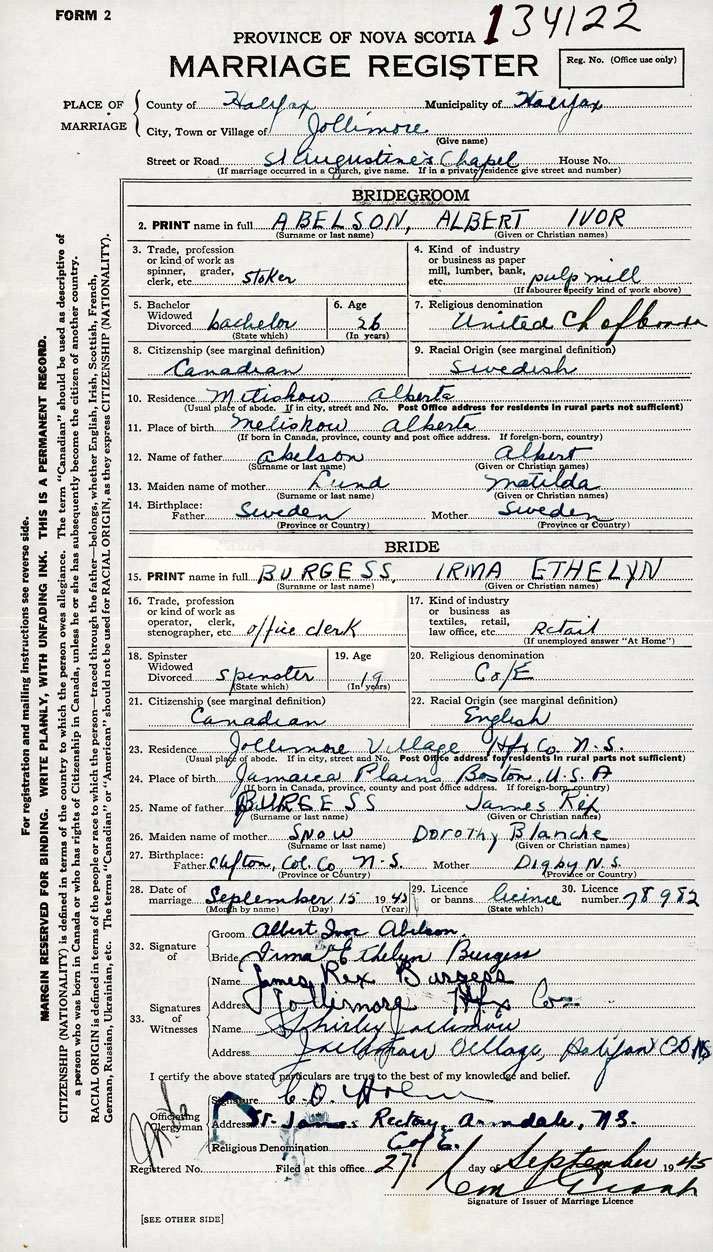 FORM 2
134122
PROVINCE OF NOVA SCOTIA
MARRIAGE REGISTER
Reg. No. (Office use only)
PLACE OF MARRIAGE
County of Halifax Municipality of Halifax
City, Town or Village of Jollimore
(Give name)
Street or Road St Augustine's Chapel House No.
(If marriage occurred in a Church, give name. If in a private residence give street and number)
BRIDEGROOM
2. PRINT name in full ABELSON, ALBERT IVOR
(Surname or last name) (Given or Christian names)
3. Trade, profession or kind of work as spinner, grader, clerk, etc. Stoker
4. Kind of industry or business as paper mill, lumber, bank, etc. pulp mill
(If labourer specify kind of work above)
5. Bachelor Widowed Divorced bachelor
(State which)
6. Age 26
(In years)
7. Religious denomination United Ch of
8. Citizenship (see marginal definition)
Canadian
9. Racial Origin (see marginal definition)
Swedish
10. Residence Metiskow Alberta
(Usual place of abode. If in city, street and No. Post Office address for residents in rural parts not sufficient)
11. Place of birth Metiskow Alberta
(If born in Canada, province, county and post office address. If foreign-born, country)
12. Name of father Abelson Albert
(Surname or last name) (Given or Christian names)
13. Maiden name of mother Lund Matilda
(Surname or last name) (Given or Christian names)
14. Birthplace: Father Sweden Mother Sweden
(Province or Country) (Province or Country)
BRIDE
15. PRINT name in full BURGESS, IRMA ETHELYN
(Surname or last name) (Given or Christian names)
16. Trade, profession or kind of work as operator, clerk, stenographer, etc. office clerk
17. Kind of industry or business as textiles, retail, law office, etc. Retail
(If unemployed answer "At Home")
18. Spinster Widowed Divorced Spinster
(State which)
19. Age 19
(In years)
20. Religious denomination
Co/E
21. Citizenship (see marginal definition)
Canadian
22. Racial Origin (see marginal definition)
English
23. Residence Jollimore Village Hfx Co. N.S.
(Usual place of abode. If in city, street and No. Post Office address for residents in rural parts not sufficient)
24. Place of birth Jamaica Plains Boston, U.S.A
(If born in Canada, province, county and post office address. If foreign-born country)
25. Name of father BURGESS James Rex
(Surname or last name) (Given or Christian names)
26. Maiden name of mother Snow Dorothy Blanche
(Surname or last name) (Given or Christian names)
27. Birthplace: Father Clifton, Col. Co, N-S. Mother Digby N.S.
(Province or Country) (Province or Country)
28. Date of marriage September 15 1945
(Month by name) (Day) (Year)
29. Licence or banns licince
(State which)
30. Licence number 78982
32. Signature of
Groom Albert Ivor Abelson.
Bride Irma Ethelyn Burgess
33. Signatures of Witnesses
Name James Rex Burgess
Address Jollimore Hfx Co
Name Shirley Jollimore
Address Jollimore Village, Halifax CO NS
I certify the above stated particulars are true to the best of my knowledge and belief.
Officiating Clergyman
Signature
Address St. James Rectory, Armdale, N.S.
Religious Denomination C of E.
Registered No. Filed at this office 27 day of September 1945
Signature of Issuer of Marriage Licence
[SEE OTHER SIDE]
For registration and mailing instructions see reverse side.
MARGIN RESERVED FOR BINDING. WRITE PLAINLY, WITH UNFADING INK. THIS IS A PERMANENT RECORD.
CITIZENSHIP (NATIONALITY) is defined in terms of the country to which the person owes allegiance. The term "Canadian" should be used as descriptive of
a person who was born in Canada or who has rights of Citizenship in Canada, unless he or she has subsequently become the citizen of another country.
RACIAL ORIGIN is defined in terms of the people or race to which the person—traced through the father—belongs, whether English, Irish, Scottish, French,
German, Russian, Ukrainian, etc. The terms "Canadian" or "American" should not be used for RACIAL ORIGIN, as they express CITIZENSHIP (NATIONALITY).